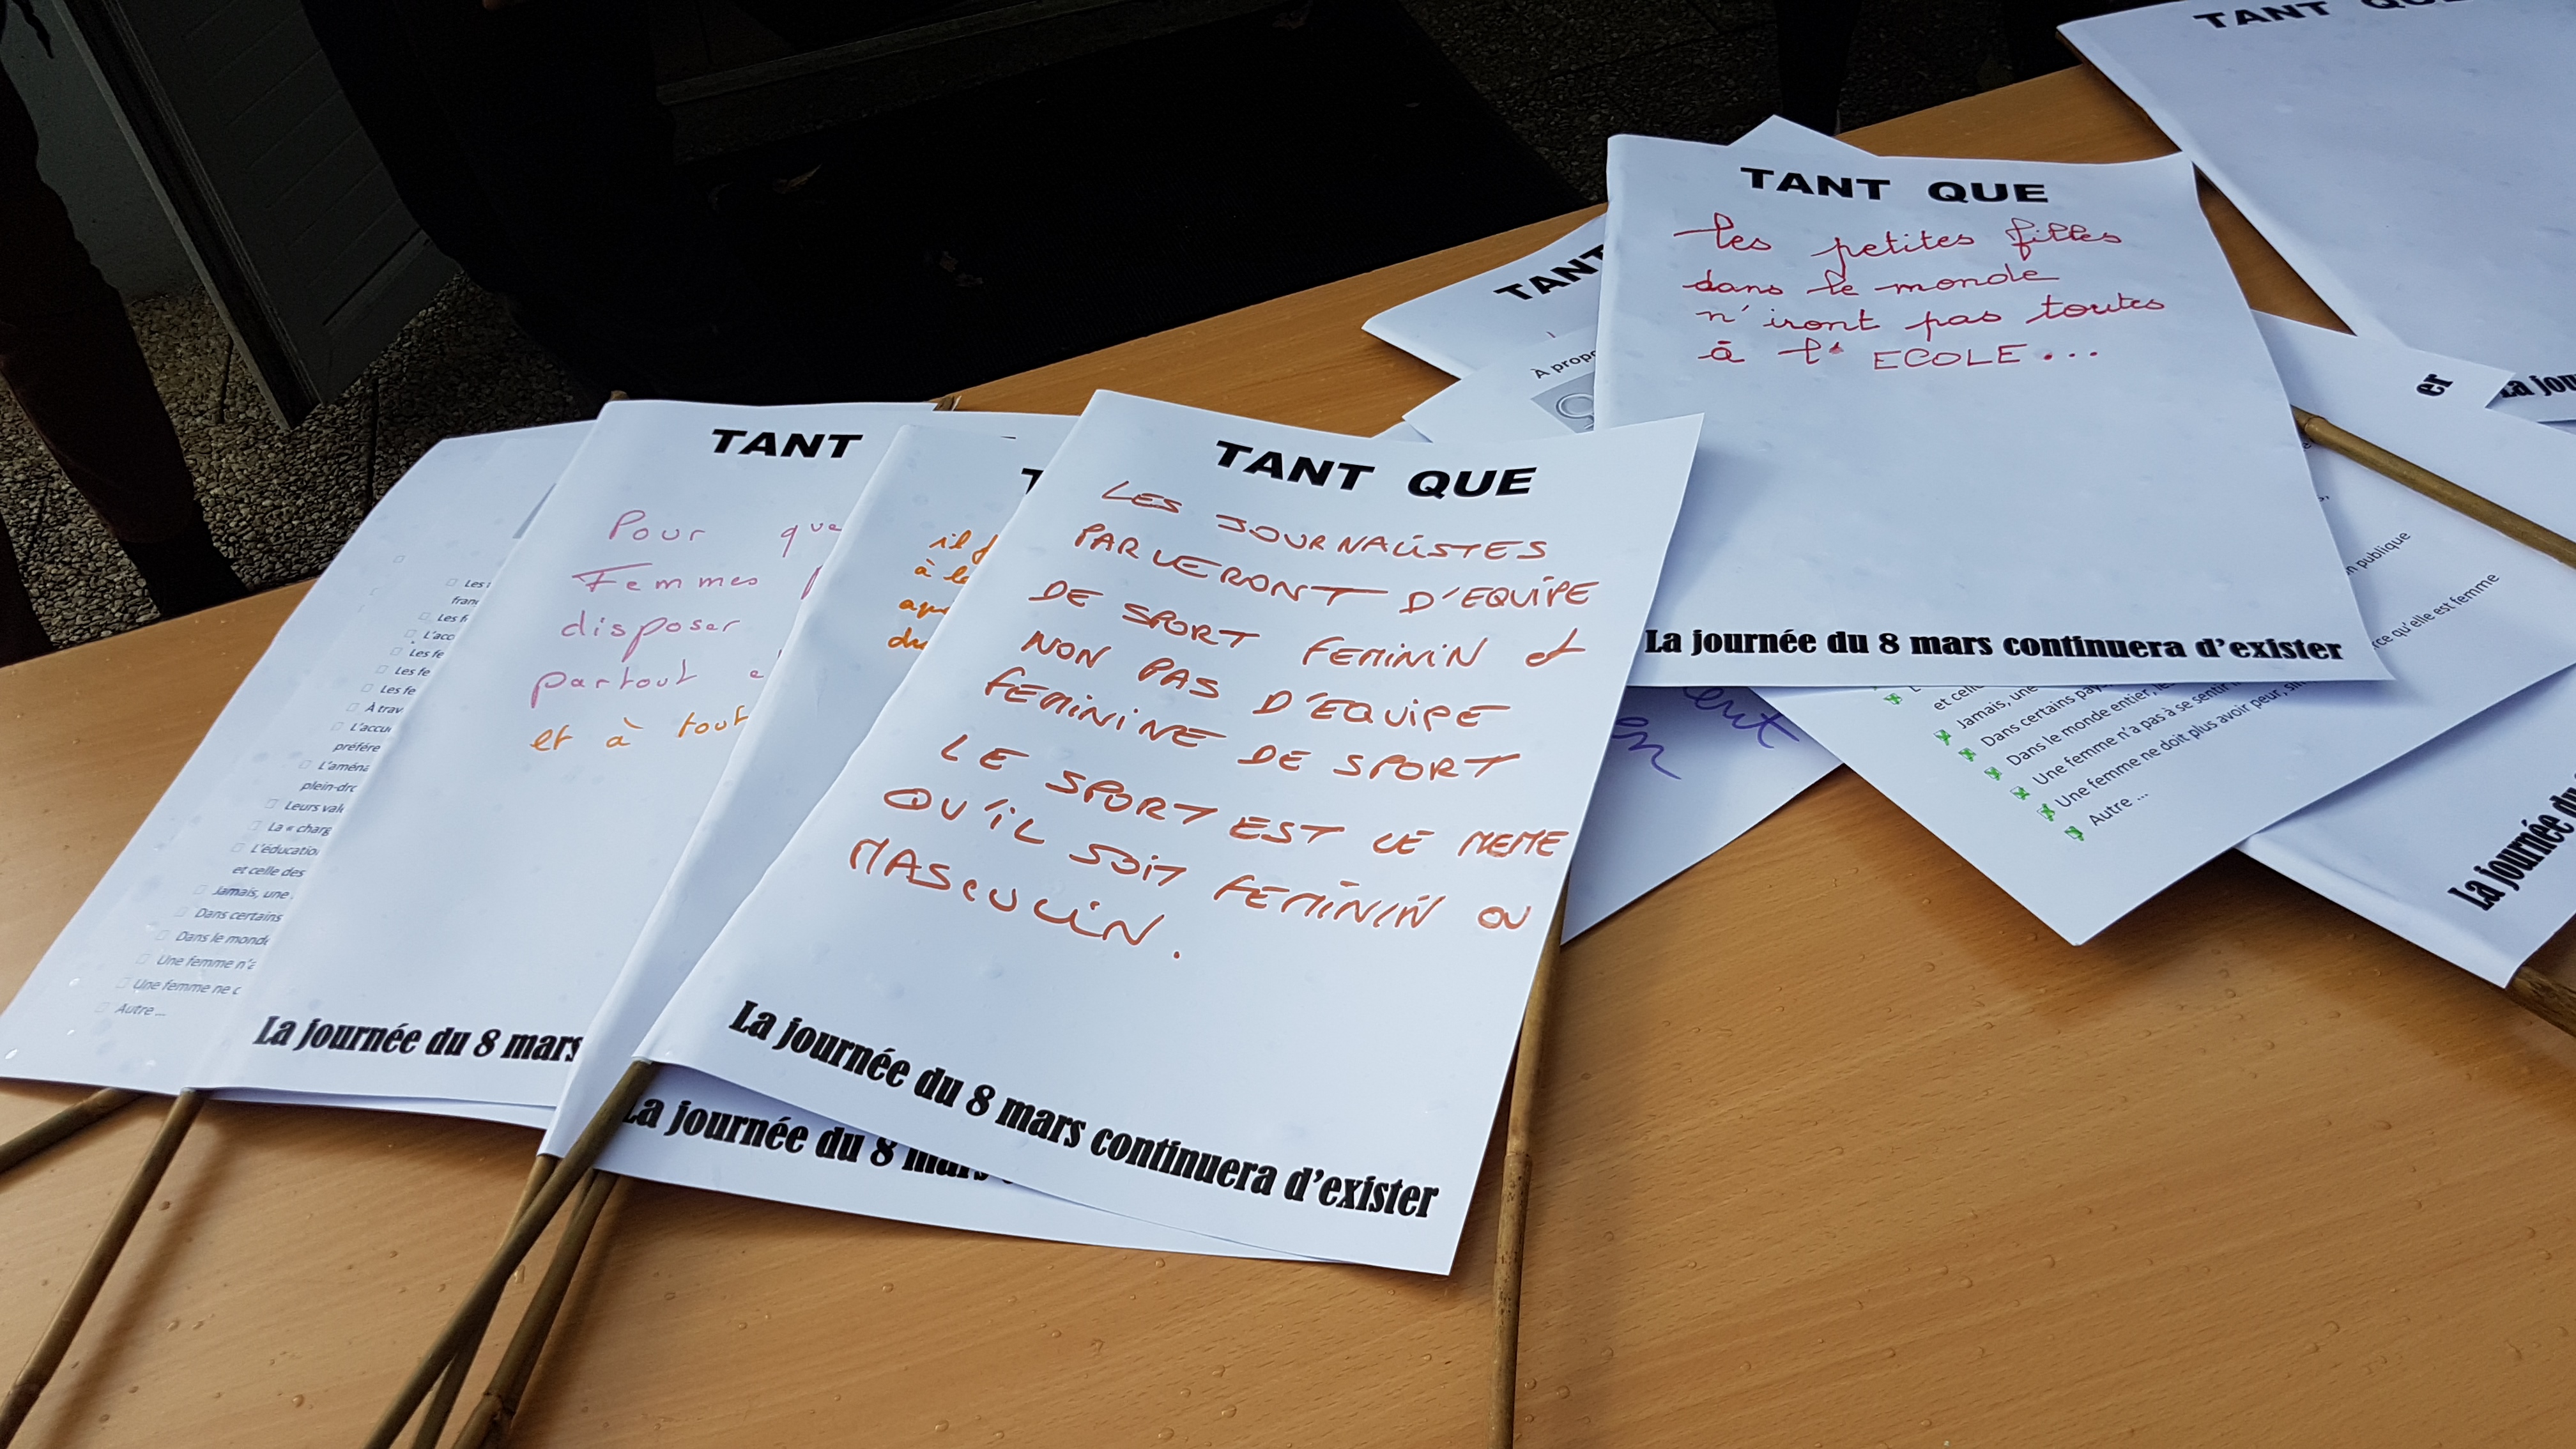 TANT
Pour que
Femmes
disposer
partout
et à tout
La journée du 8 mars
Les fe
Les fe
Les fe
À trav
préfére
plein-dro
Leurs val
La « charg
L'éducatio
et celle des
Jamais, une
Dans certains
Dans le monde
Une femme n'a
Une femme ne
Autre ...
il
à la
La journée du 8 mars
TANT QUE
LES JOURNALISTES
PARLERONT D'EQUIPE
DE SPORT FEMININ et
NON PAS D'EQUIPE
FEMININE DE SPORT
LE SPORT EST LE MEME
QU'IL SOIT FEMININ OU
MASCULIN.
La journée du 8 mars continuera d'exister
TANT
À propo
TANT QUE
les petites filles
dans le monde
n'iront pas toutes
à l'ECOLE...
La journée du 8 mars continuera d'exister
TANT QUE
La jour
er
publique
qu'elle est femme
et celle
Jamais, une
Dans certains pay
Dans le monde entier, le
Une femme n'a pas à se sentir
Une femme ne doit plus avoir peur, sim
Autre ...
La journée du